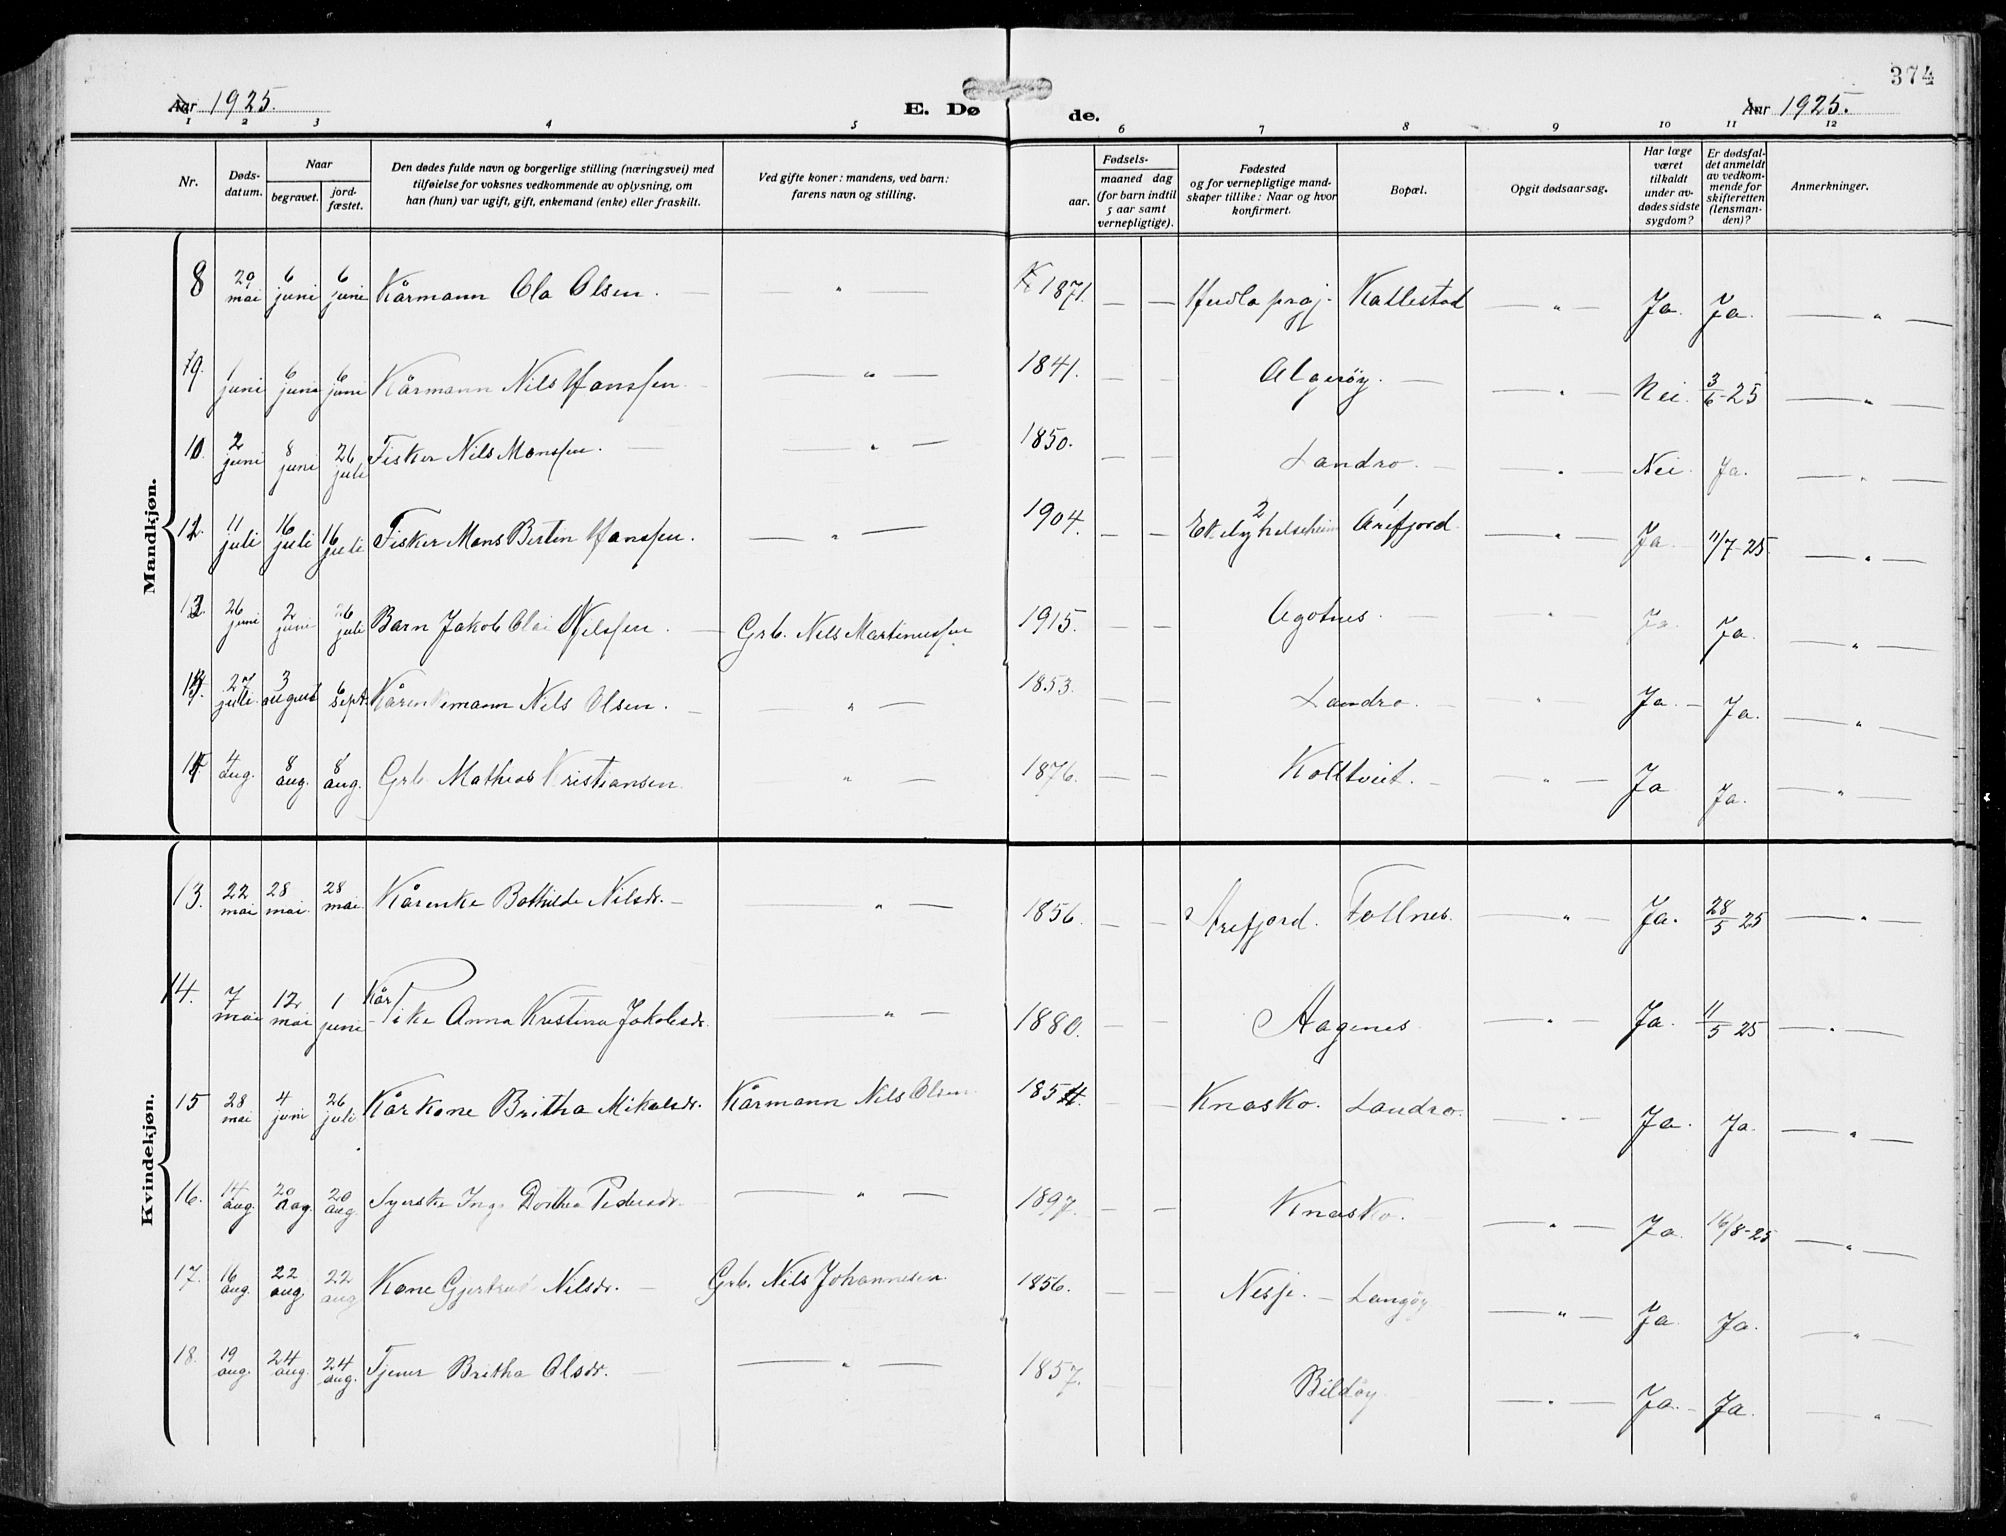 374
Aar 1925. E. Dø de. Aar 1925.
1 2 3 4 5 6 7 8 9 10 11 12
Nr. | Døds-datum. | Naar begravet. | jord-fæstet. | Den dødes fulde navn og borgerlige stilling (næringsvei) med tilføielse for voksnes vedkommende av oplysning, om han (hun) var ugift, gift, enkemand (enke) eller fraskilt. | Ved gifte koner: mandens, ved barn: farens navn og stilling. | Fødsels- aar. | maaned dag (for barn indtil 5 aar samt vernepligtige). | Fødested og for vernepligtige mandskaper tillike: Naar og hvor konfirmert. | Bopæl. | Opgit dødsaarsag. | Har læge været tilkaldt under avdødes sidste sygdom? | Er dødsfaldet anmeldt av vedkommende for skifteretten (lensmanden)? | Anmerkninger.
Mandkjøn.
8 | 29 mai | 6 juni | 6 juni | Kårmann Ola Olsen. | " | 1871. | — | — | Herdla prgj. | Kallestad | " | Ja. | Ja. | "
9. | 1 juni | 6 juni | 6 juni | Kårmann Nils Hanssen. | " | 1841. | — | — | Algerøy. — | " | Nei. | 3/6-25 | "
10. | 2 juni | 8 juni | 26 juli | Fisker Nils Monssen. | " | 1850. | — | — | Landro. — | " | Nei. | Ja. | "
11. | 11 juli | 16 juli | 16 juli | Fisker Mons Bertin Hanssen. | " | 1904. | — | — | 2 | 1 Arefjord. | " | Ja. | 11/7-25. | "
12. | 26 juni | 2 juni | 26 juli | Barn Jakob Olai Nilssen. | Grb. Nils Martinussen. | 1915. | — | — | Agotnes. — | " | Ja. | Ja. | "
13. | 27 juli. | 3 august | 6 sept. | Kårenkemann Nils Olsen. | " | 1853. | — | — | Landro. — | " | Ja. | Ja. | "
14 | 4 aug. | 8 aug. | 8 aug. | Grb. Mathias Kristiansen. | " | 1876. | — | — | Kolltveit. — | " | Ja | Ja. | "
Kvindekjøn.
13. | 22 mai | 28 mai. | 28 mai. | Kårenke Bothilde Nilsdr. | " | 1856. | — | — | Arefjord. | Follnes. | " | Ja. | 28/5 25 | "
14. | 7 mai | 12 mai | 1 juni | Kår Pike Anna Kristina Jakobsdr. | " | 1880. | — | — | Aagenes | " | Ja. | 11/5 25 | "
15 | 28 mai | 4 juni | 26 juli | Kårkone Britha Mikalsdr. | Kårmann Nils Olsen. | 1854. | — | — | Knasko. | Landro. | " | Ja. | Ja. | "
16. | 14 aug. | 20 aug. | 20 aug. | Syerske Inga Dorthea Pedersdr. | " | 1897. | — | — | Knasko. | " | Ja. | 16/8-25 | "
17. | 16 aug. | 22 aug. | 22 aug | Kone Gjertrud Nilsdr. — | Grb. Nils Johannesen. | 1856. | — | — | Nesje. — | Langøy | " | Ja. | Ja. | "
18. | 19 aug. | 24 aug. | 24 aug. | Tjener Britha Olsdr. — | " | 1857. | — | — | Bildøy | " | Ja. | Ja. | "